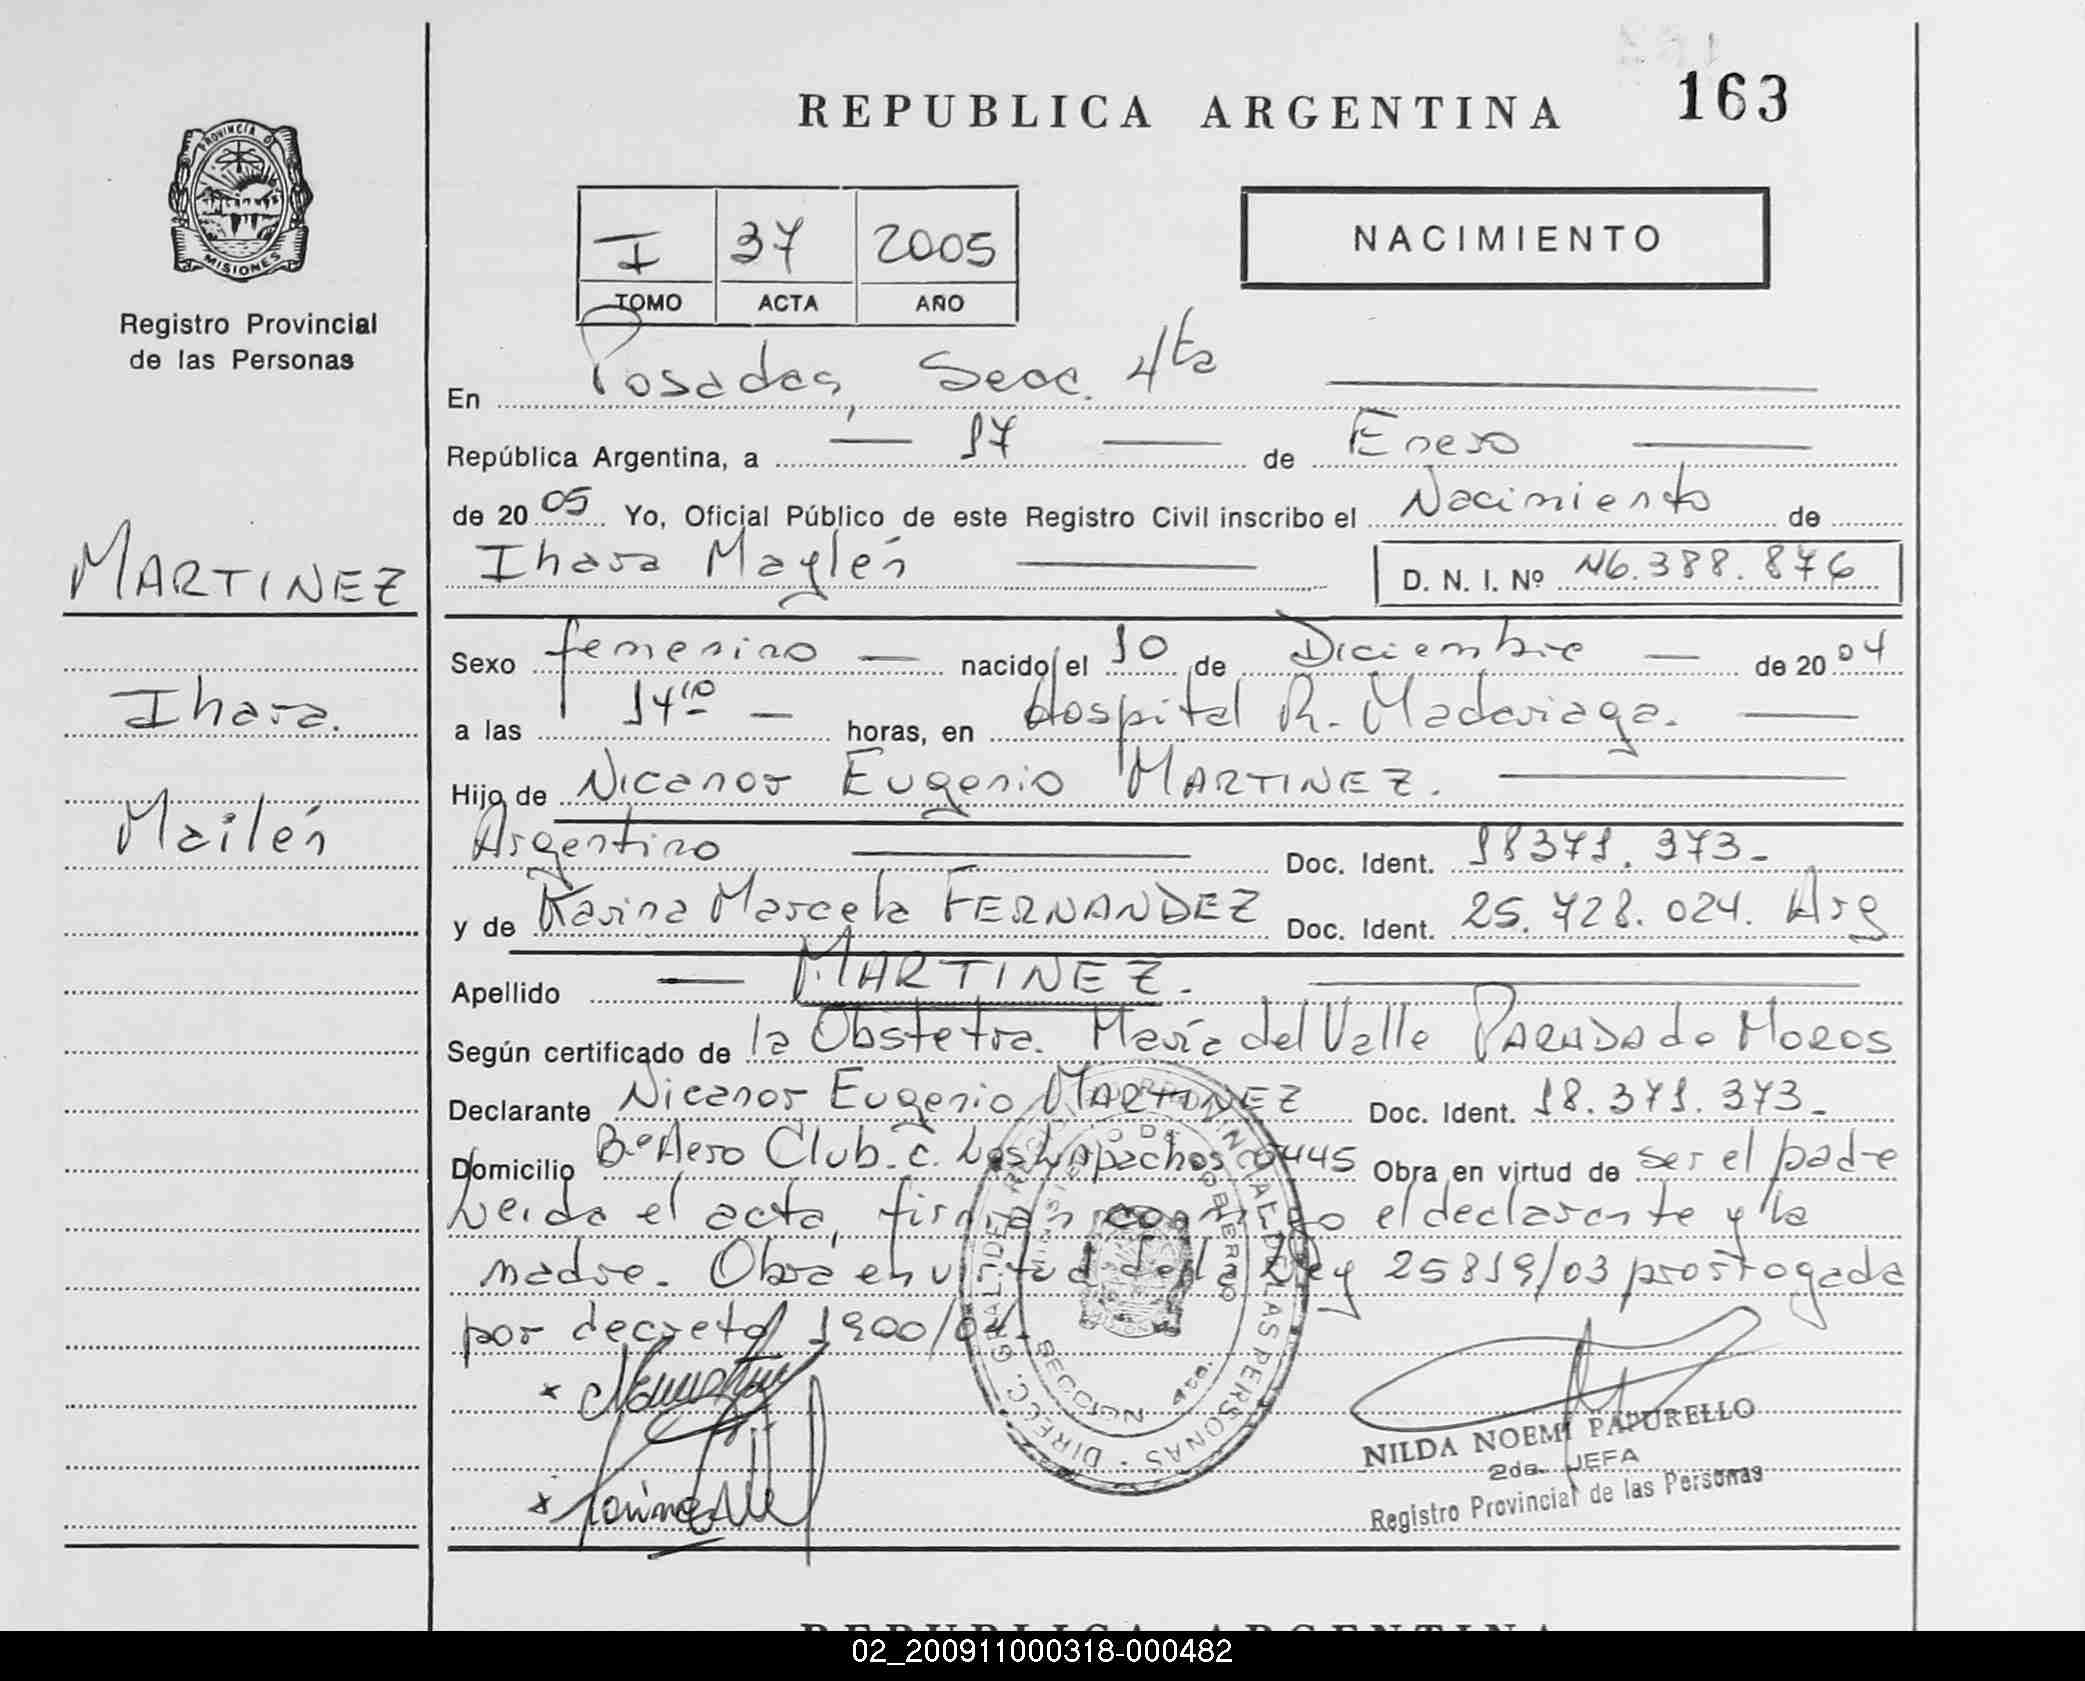 163
REPUBLICA ARGENTINA
PROVINCIA D
MISIONES
Registro Provincial
de las Personas
I 37 2005
TOMO ACTA AÑO
NACIMIENTO
En Posadas, Secc. 4ta
República Argentina, a 17 de Enero
de 2005 Yo, Oficial Público de este Registro Civil inscribo el Nacimiento de
Ihara Maylén D. N. I. Nº 46.388.876
MARTINEZ
Ihara.
Mailén
Sexo femenino nacido el 10 de Diciembre de 2004
a las 14 10 horas, en Hospital R. Madariaga.
Hijo de Nicanor Eugenio MARTINEZ.
Argentino Doc. Ident. 18371.373-
y de Karina Marcela FERNANDEZ Doc. Ident. 25.728.024. Arg
Apellido MARTINEZ.
Según certificado de la Obstetra. María del Valle de MOROS
Declarante Nicanor Eugenio MARTINEZ Doc. Ident. 18.371.373-
Domicilio Bº Aero Club. c. Los Lapachos 0445 Obra en virtud de ser el padre
Leida el acta, firman conmigo el declarante y la
madre. Obra en virtud de la Ley 25819/03 prorrogada
por decreto 1900/04.
DIRECC. GRAL. DEL REG. PROVINCIAL DE LAS PERSONAS
MINISTERIO DE GOBIERNO
SECCION 4ta.
NILDA NOEMI PAPURELLO
2da. JEFA
Registro Provincial de las Personas
REPUBLICA ARGENTINA
02_200911000318-000482